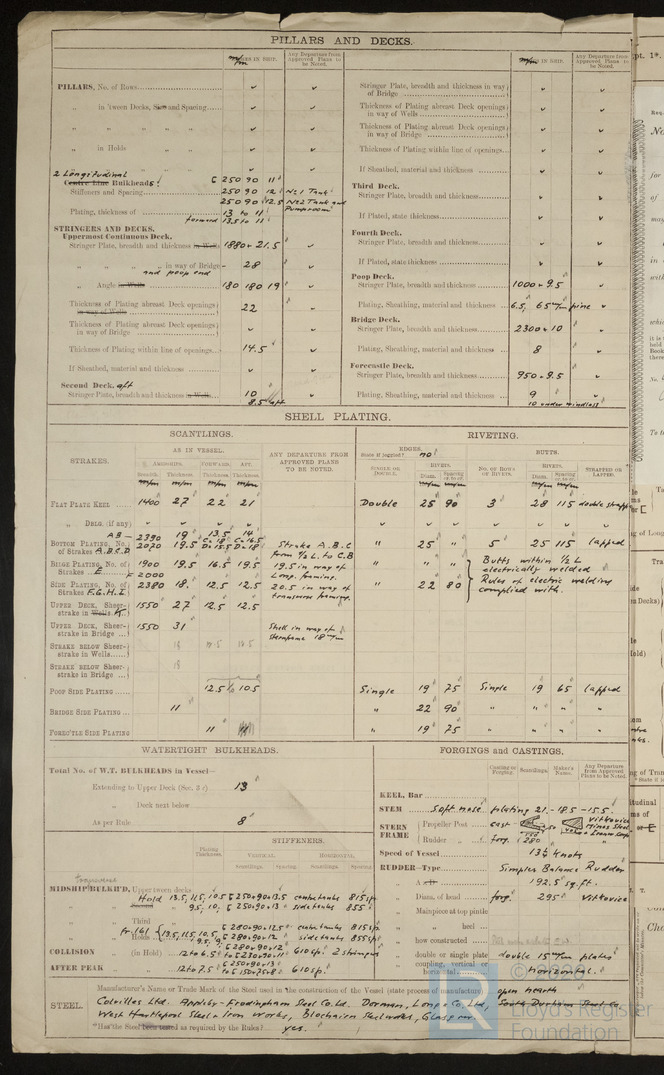 PILLARS AND DECKS.
m/m IN SHIP.
Any Departure from Approved Plans to be Noted.
PILLARS, No. of Rows
„ in 'tween Decks, Size and Spacing
„ „ „ „
„ in Holds
2 Longitudinal
Centre Line Bulkheads.
[ 250 90 11
Stiffeners and Spacing
250 90 12 No 1 Tank
250 90 12.5 No 2 Tank and Pumproom
Plating, thickness of
13 to 11
forward 13.5 to 11
STRINGERS AND DECKS.
Uppermost Continuous Deck.
Stringer Plate, breadth and thickness in Wells 1880 × 21.5
„ „ „ „ in way of Bridge 28
and poop end
„ Angle in Wells 180 180 19
Thickness of Plating abreast Deck openings in way of Wells 22
Thickness of Plating abreast Deck openings in way of Bridge
Thickness of Plating within line of openings 14.5
If Sheathed, material and thickness
Second Deck. aft
Stringer Plate, breadth and thickness in Wells 10
8.5 aft
m/m IN SHIP.
Any Departure from Approved Plans to be Noted.
Stringer Plate, breadth and thickness in way of Bridge
Thickness of Plating abreast Deck openings in way of Wells
Thickness of Plating abreast Deck openings in way of Bridge
Thickness of Plating within line of openings
If Sheathed, material and thickness
Third Deck.
Stringer Plate, breadth and thickness
If Plated, state thickness
Fourth Deck.
Stringer Plate, breadth and thickness
If Plated, state thickness
Poop Deck.
Stringer Plate, breadth and thickness 1000 × 9.5
Plating, Sheathing, material and thickness 6.5, 65 m/m pine
Bridge Deck.
Stringer Plate, breadth and thickness 2300 × 10
Plating, Sheathing, material and thickness 8
Forecastle Deck.
Stringer Plate, breadth and thickness 950 × 9.5
Plating, Sheathing, material and thickness 9
10 under windlass
SHELL PLATING.
SCANTLINGS.
RIVETING.
STRAKES.
AS IN VESSEL.
AMIDSHIPS. FORWARD. AFT.
Breadth. Thickness. Thickness. Thickness.
m/m m/m m/m m/m
ANY DEPARTURE FROM APPROVED PLANS TO BE NOTED.
EDGES.
State if joggled? no
SINGLE OR DOUBLE.
RIVETS.
Diam. Spacing cr. to cr.
BUTTS.
No. OF ROWS OF RIVETS.
RIVETS.
Diam. Spacing cr. to cr.
STRAPPED OR LAPPED.
FLAT PLATE KEEL 1400 27 22 21 Double 25 90 3 28 115 double strapp
„ DBLG. (if any)
AB - 2390 19 13.5 14
BOTTOM PLATING, No. of Strakes A.B.C.D 2070 19.5 C=18 D=15.5 C=16.5 D=18 Strake A.B.C from ½ L. to C.B „ 25 „ 5 25 115 lapped
BILGE PLATING, No. of Strakes E 1900 19.5 16.5 19.5 19.5 in way of Long. framing. „ „ „ Butts within ½ L electrically welded
F 2000
SIDE PLATING, No. of Strakes F.G.H.I. 2380 18 12.5 12.5 20.5 in way of transverse framing. „ 22 80 Rules of electric welding complied with.
UPPER DECK, Sheerstrake in Wells K 1550 27 12.5 12.5
UPPER DECK, Sheerstrake in Bridge 1550 31 Shell in way of sternframe 18 m/m
STRAKE BELOW Sheerstrake in Wells 18 12.5 12.5
STRAKE BELOW Sheerstrake in Bridge 18
POOP SIDE PLATING 12.5 10.5 Single 19 75 Single 19 65 lapped
BRIDGE SIDE PLATING 11 „ 22 90 „ „ „ „
FORE'C'TLE SIDE PLATING 11 „ 19 75 „ „ „ „
WATERTIGHT BULKHEADS.
Total No. of W.T. BULKHEADS in Vessel—
Extending to Upper Deck (Sec. 3) 13
„ Deck next below
As per Rule 8
Plating Thickness.
STIFFENERS.
VERTICAL. HORIZONTAL.
Scantlings. Spacing. Scantlings. Spacing.
transverse
MIDSHIP BULK'D, Upper tween decks
Hold 13.5, 11.5, 10.5 [ 250×90×13.5 centre tanks 815 sp.
9.5, 10, [ 250×90×13 side tanks 855
„ Third „
Fr. 161 [ 280×90×12.5 centre tanks 815 sp.
„ Holds 13.5, 11.5, 10.5, 9.5, 9 [ 280×90×12 side tanks 855 sp.
COLLISION „ (in Hold) 12 to 6.5 [ 280×90×12 to [ 230×90×11 610 sp. 2 stringers
AFTER PEAK „ „ 12 to 7.5 [ 250×90×13 to [ 150×75×8 610 sp.
FORGINGS and CASTINGS.
Casting or Forging. Scantlings. Maker's Name. Any Departure from Approved Plans to be Noted.
KEEL, Bar
STEM Soft nose plating 21.-18.5-15.5.
STERN FRAME
Propeller Post cast Vitkovice Mines Steel & Ironw. Corp.
Rudder „ forg. 280
Speed of Vessel 13½ knots
RUDDER—Type Simplex Balance Rudder
„ A 192.5 sq. ft.
„ Diam. of head forg. 295 Vitkovice
„ Mainpiece at top pintle
„ „ heel
„ how constructed
„ double or single plate double 15 m/m plates
„ coupling, vertical or horizontal horizontal.
STEEL. Manufacturer's Name or Trade Mark of the Steel used in the construction of the Vessel (state process of manufacture) open hearth
Colvilles Ltd. Appleby-Frodingham Steel Co. Ld. Dorman, Long & Co, Ltd, South Durham Steel Co,
West Hartlepool Steel & Iron Works, Blochairn Steelworks, Glasgow.
Has the Steel been tested as required by the Rules? yes.
Lloyd's Register
Foundation